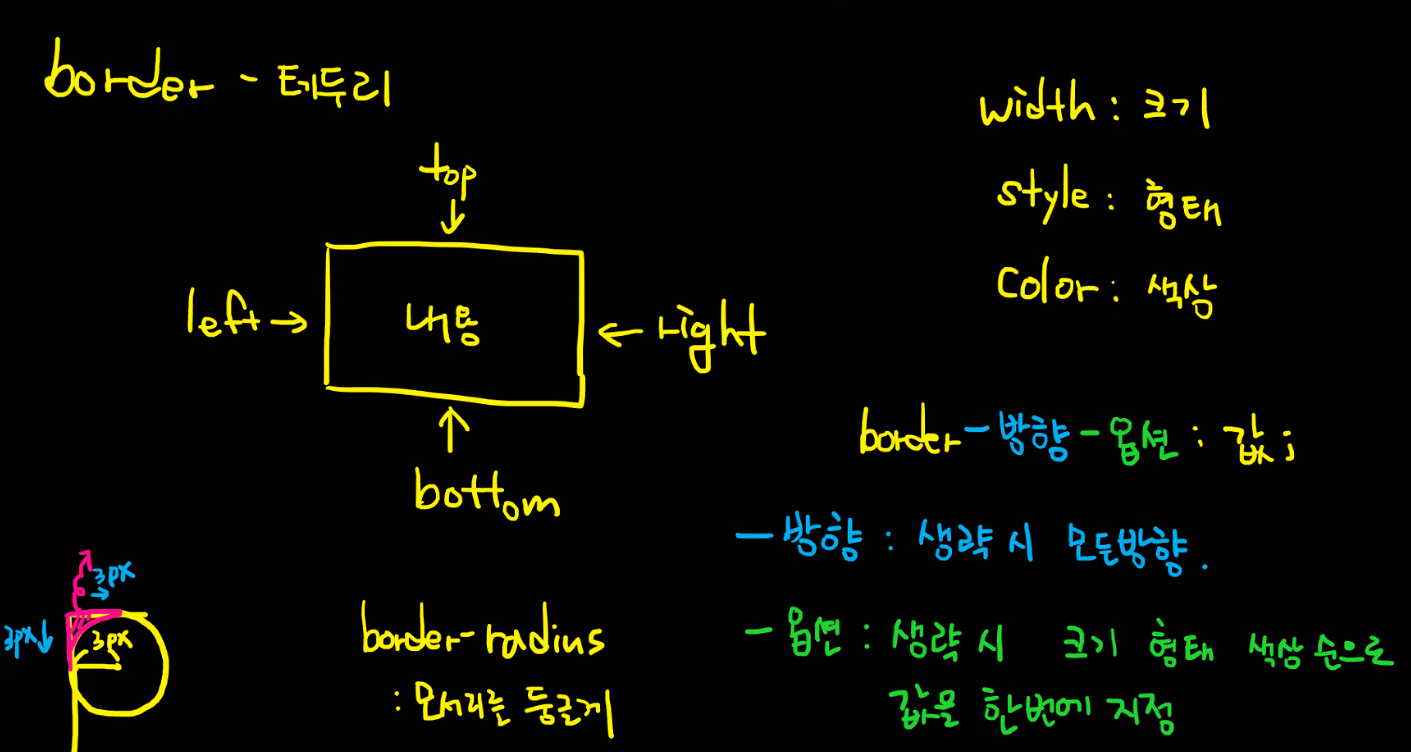 border - 테두리
top
left → 내용 ← right
bottom
width : 크기
style : 형태
color : 색상
border-방향-옵션 : 값;
-방향 : 생략 시 모든방향.
-옵션 : 생략 시 크기 형태 색상 순으로
값을 한번에 지정
3px
3px
3px
border-radius
: 모서리를 둥글게